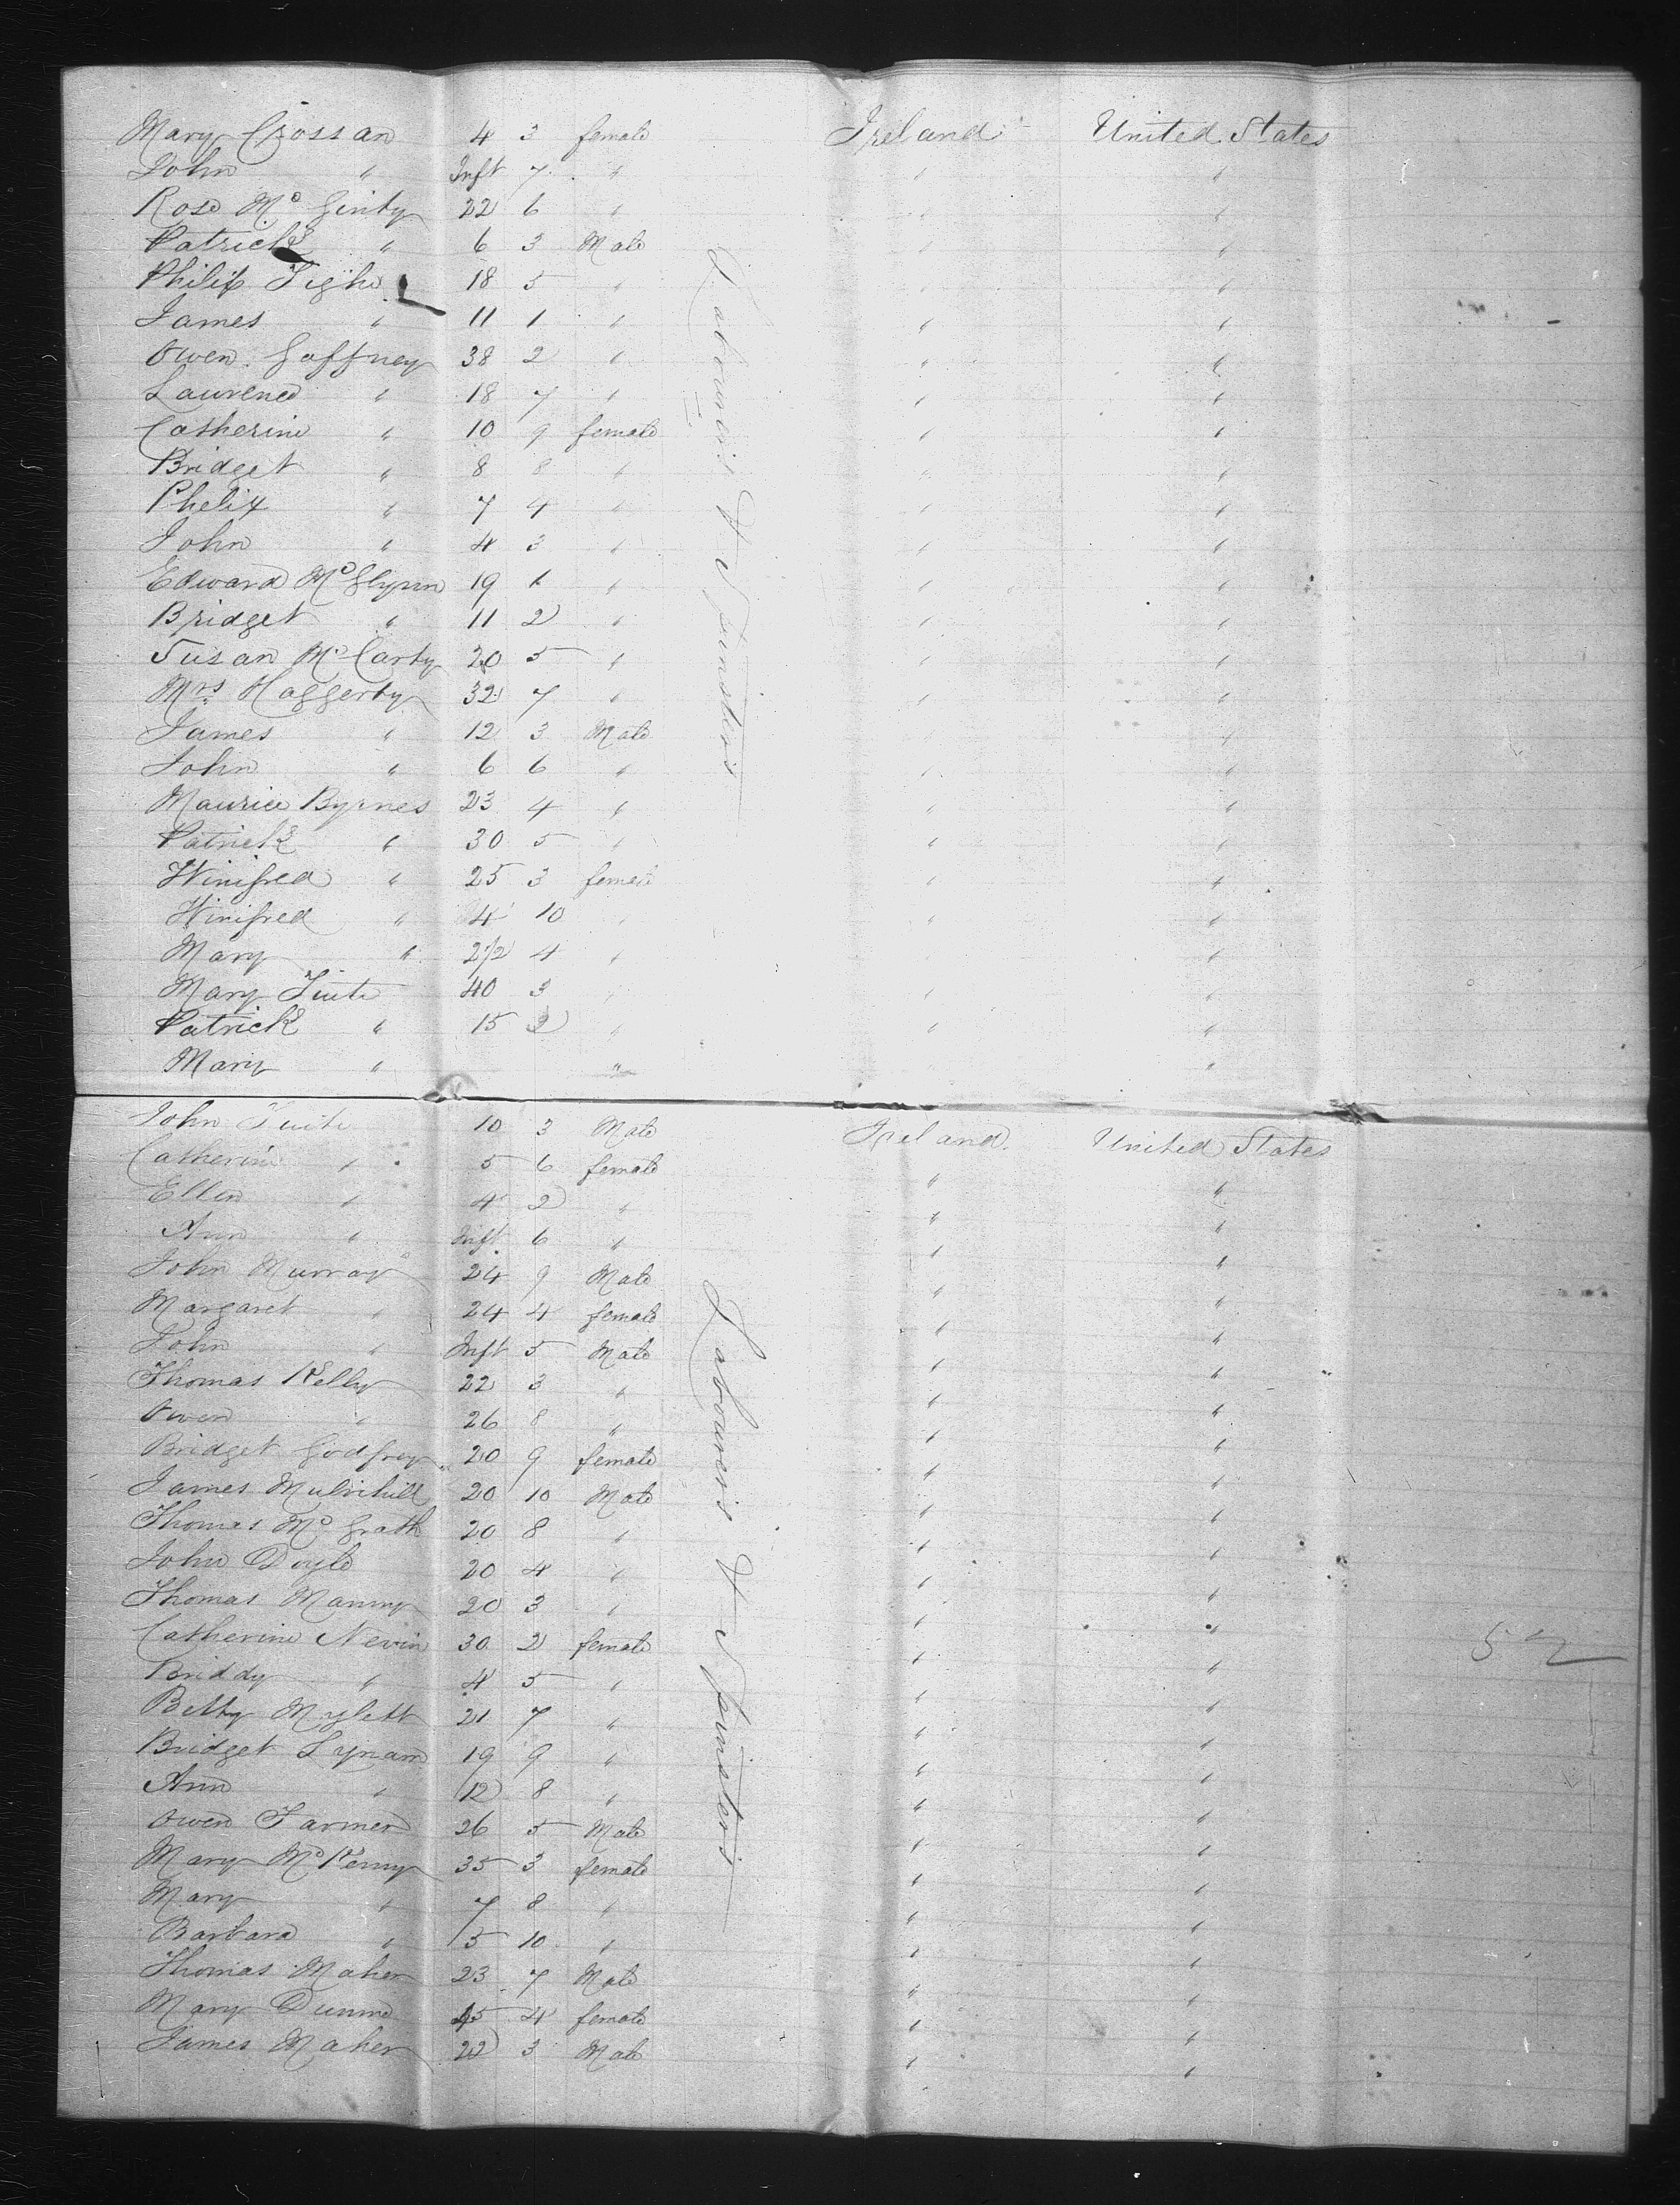 Mary Crossan 4 3 female Ireland United States
John " Inft 7 " " "
Rose McGinty 22 6 " " "
Patrick " 6 3 Male " "
Philip Tighe 18 5 " " "
James " 11 1 " " "
Owen Gaffney 38 2 " " "
Laurence " 18 7 " " "
Catherine " 10 9 female " "
Bridget " 8 8 " " "
Phelix " 7 4 " " "
John " 4 3 " " "
Edward McGlynn 19 1 " " "
Bridget " 11 2 " " "
Susan McCarty 20 5 " " "
Mrs Haggerty 32 7 " " "
James " 12 3 Male " "
John " 6 6 " " "
Maurice Byrnes 23 4 " " "
Patrick " 30 5 " " "
Winifred " 25 3 female " "
Winifred " 4 10 " " "
Mary " 2 1/2 4 " " "
Mary Tuite 40 3 " " "
Patrick " 15 2 " " "
Mary " " "
Labourers & Spinsters
John Tuite 10 3 Male Ireland United States
Catherine " 5 6 female " "
Ellen " 4 2 " " "
Ann " Inft 6 " " "
John Murray 24 9 Male " "
Margaret " 24 4 female " "
John " Inft 5 Male " "
Thomas Kelly 22 3 " " "
Owen " 26 8 " " "
Bridget Godfrey 20 9 female " "
James Mulvihill 20 10 Male " "
Thomas McGrath 20 8 " " "
John Doyle 20 4 " " "
Thomas Manny 20 3 " " "
Catherine Nevin 30 2 female " "
Briddy " 4 5 " " "
Betty Mylett 21 7 " " "
Bridget Lynam 19 9 " " "
Ann " 12 8 " " "
Owen Farmer 26 5 Male " "
Mary McKenny 35 3 female " "
Mary " 7 8 " " "
Barbara " 5 10 " " "
Thomas Maher 23 7 Male " "
Mary Dunne 45 4 female " "
James Maher 22 3 Male " "
Labourers & Spinsters
52